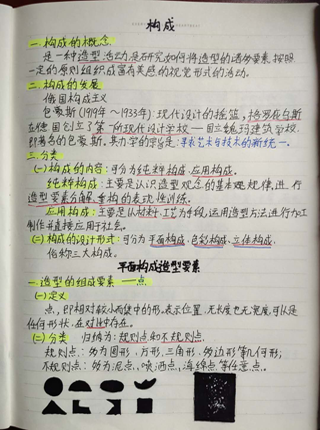 构成
一.构成的概念
是一种造型活动,是研究如何将造型的诸多要素按照
一定的原则组织成富有美感的视觉形式的活动.
二.构成的发展
俄国构成主义
包豪斯(1919年~1933年):现代设计的摇篮,格罗皮乌斯
在德国创立了第一所现代设计学校——国立魏玛建筑学校
即著名的包豪斯.其办学的宗旨是:寻求艺术与技术的新统一.
三.分类
(一)构成的内容:可分为纯粹构成、应用构成.
纯粹构成:主要是认识造型观念的基本规律,进行
造型要素分解、重构的表现性训练.
应用构成:主要是以材料、工艺为手段,运用造型方法进行加工
制作并直接应用于社会.
(二)构成的设计形式:可分为平面构成、色彩构成、立体构成.
俗称三大构成.
平面构成造型要素
一.造型的组成要素——点.
(一)定义
点,即相对较小而集中的形.表示位置,无长度也无宽度,可以是
任何形状,在对比中存在.
(二)分类 归纳为:规则点和不规则点.
规则点:多为圆形、方形、三角形、多边形等几何形;
不规则点:多为泥点、喷洒点、海绵点等任意点.